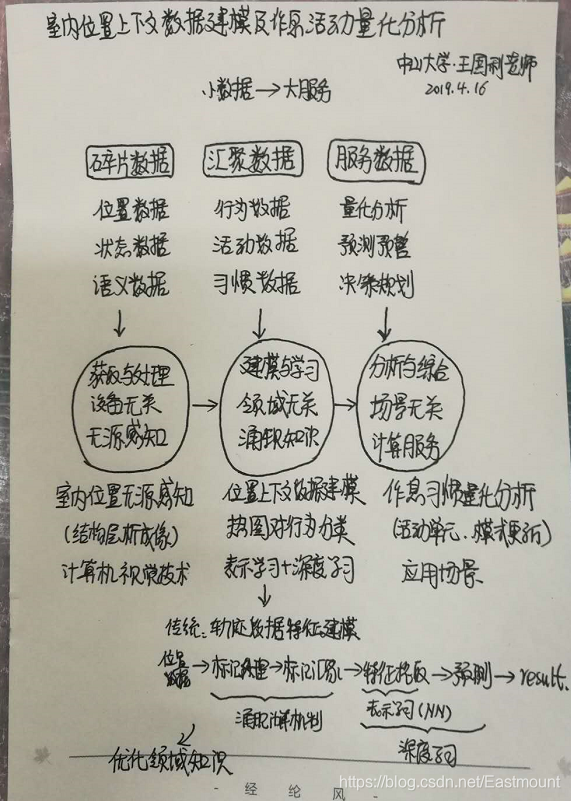 室内位置上下文数据建模及作息活动力量化分析
中山大学·王国利老师
2019.4.16
小数据→大服务
碎片数据 汇聚数据 服务数据
位置数据 行为数据 量化分析
状态数据 活动数据 预测预警
语义数据 习惯数据 决策规划
获取与处理 建模与学习 分析与综合
设备无关 领域无关 场景无关
无源感知 涌现知识 计算服务
室内位置无源感知 位置上下文数据建模 作息习惯量化分析
(结构层析成像) 热图对行为分类 (活动单元、模式更新)
计算机视觉技术 表示学习+深度学习 应用场景
传统:轨迹数据特征建模
位置数据→标记处理→标记汇聚→特征提取→预测→result.
涌现计算机制 表示学习(NN)
优化领域知识 深度学习
- 经 纶 风 -
https://blog.csdn.net/Eastmount